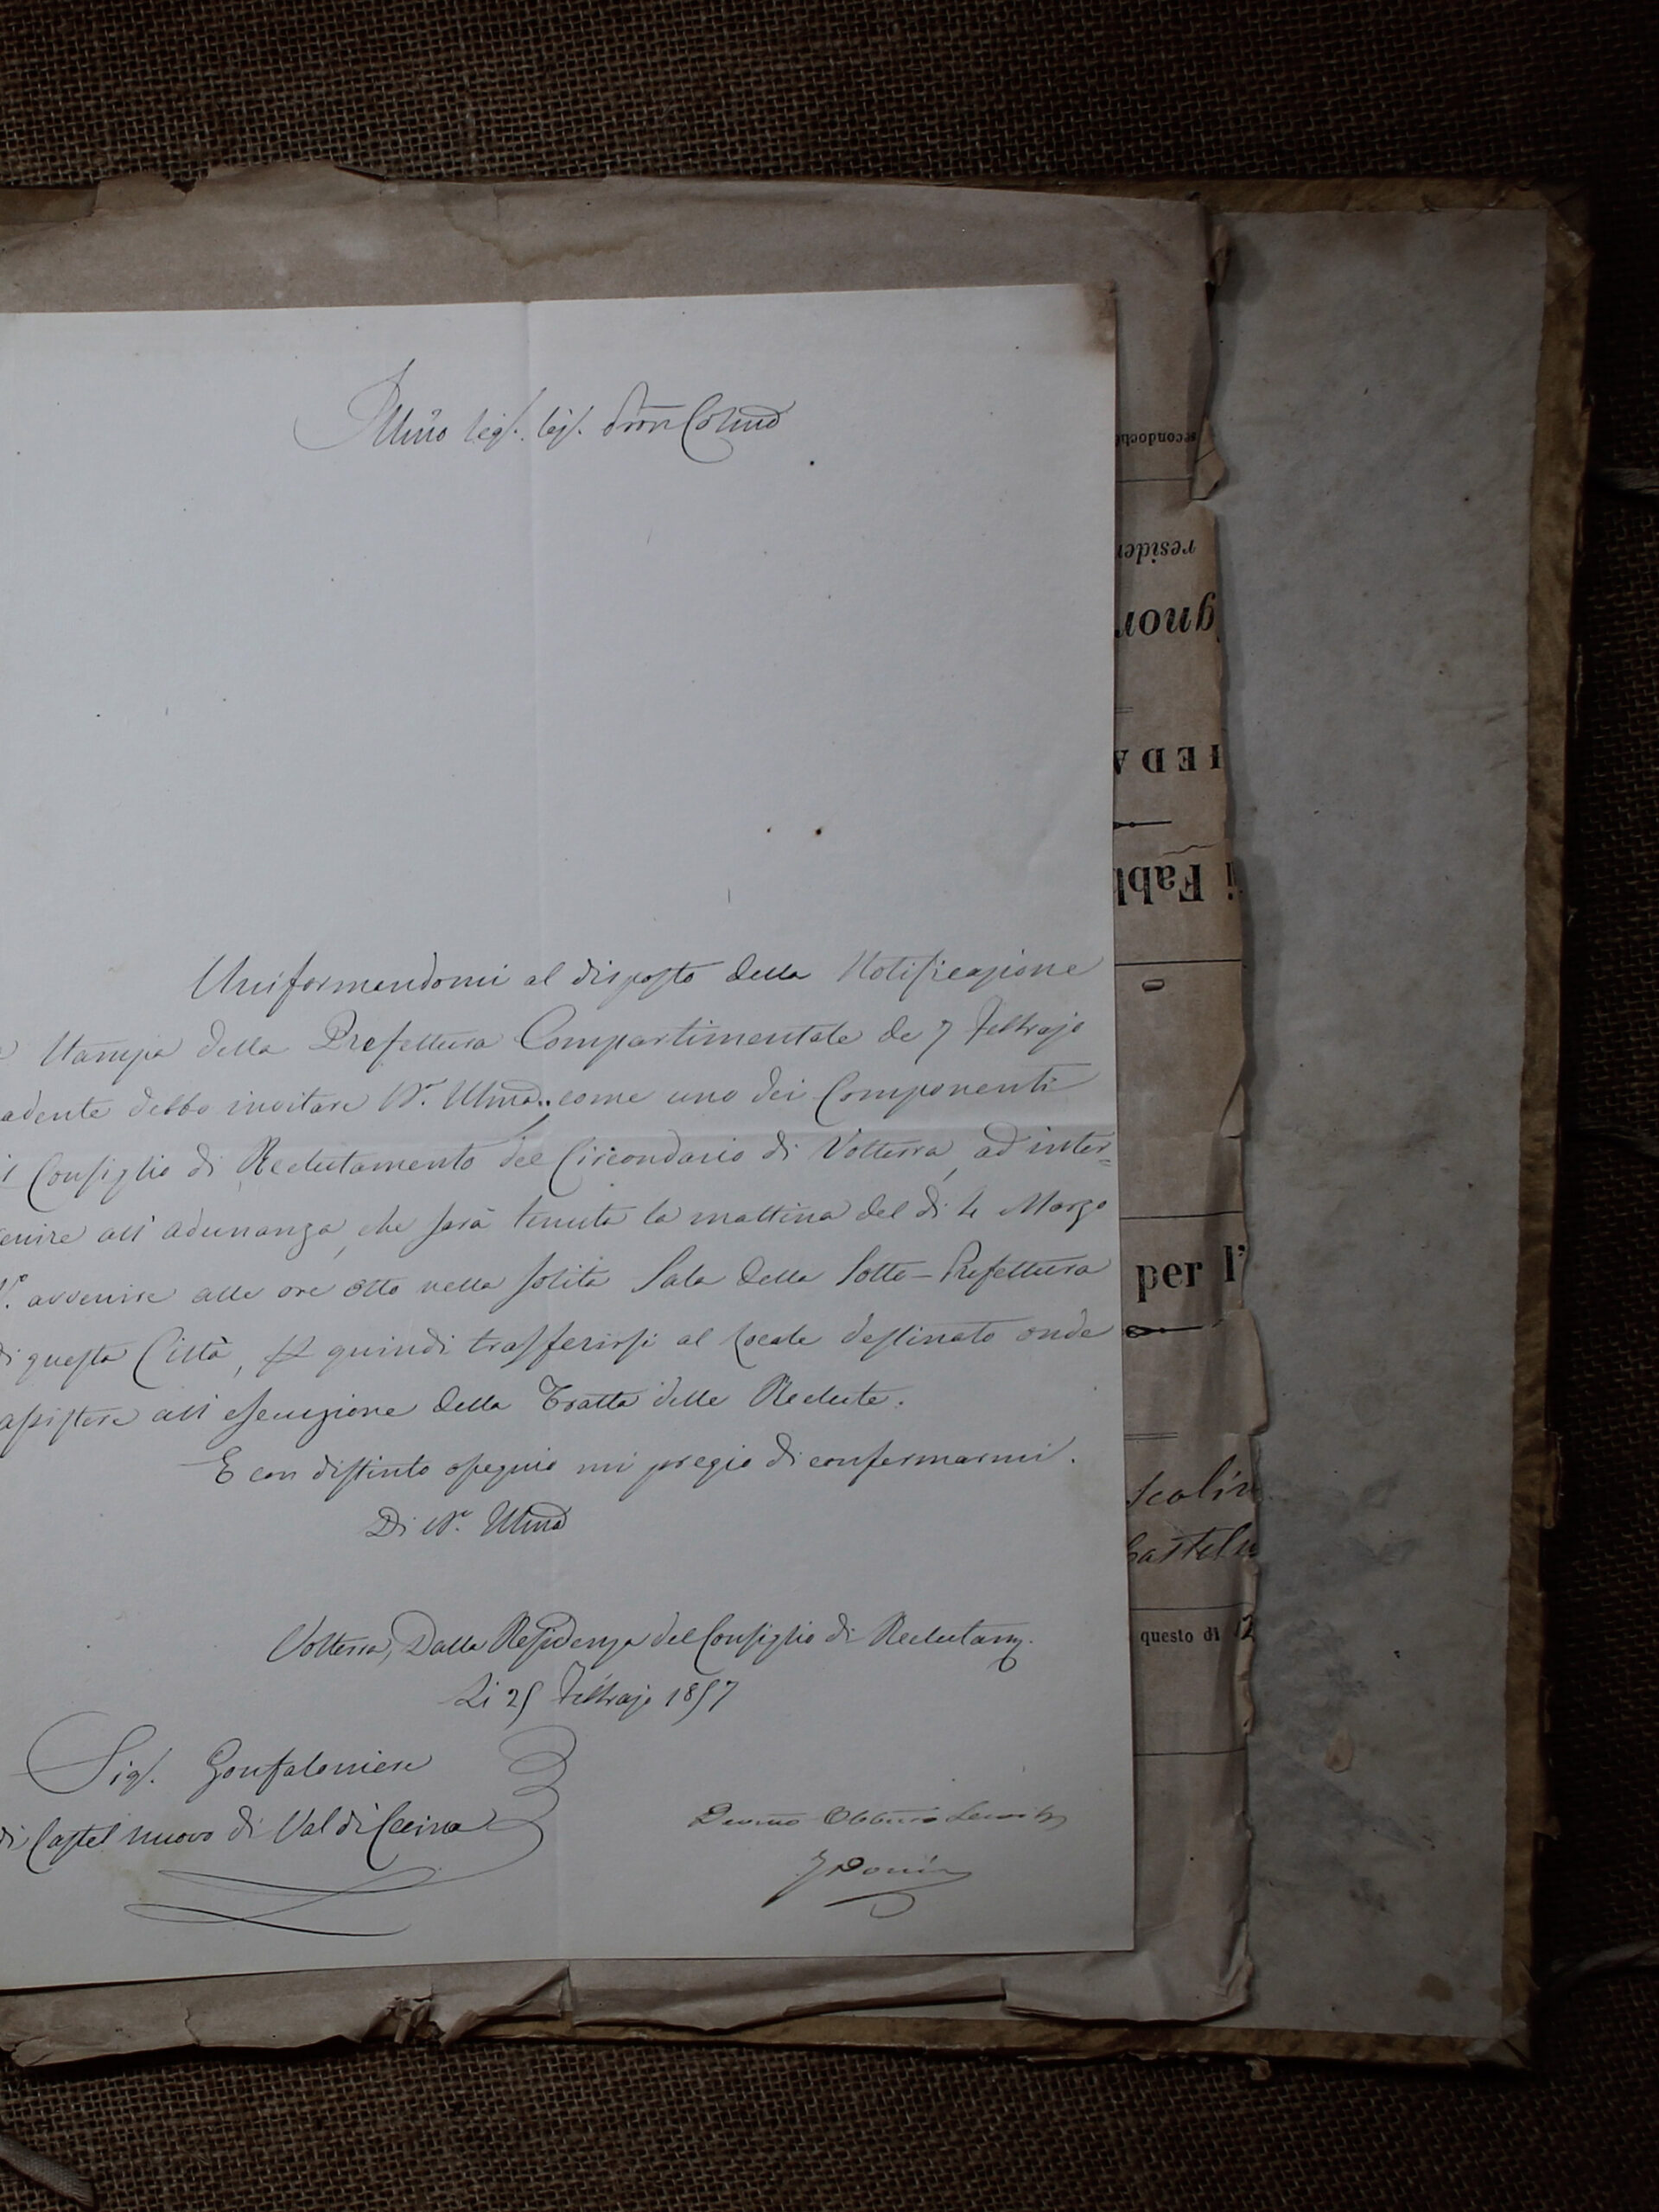 Illmo Sig. Sig. Pron Colmo
Uniformandomi al disposto della Notificazione
a Stampa della Prefettura Compartimentale de 7 Febbrajo
adente debbo invitare V. Illma come uno dei Componenti
il Consiglio di Reclutamento del Circondario di Volterra, ad inter=
enire all'adunanza, che sarà tenuta la mattina del dì 4 Marzo
avvenire alle ore otto nella solita Sala della Sotto-Prefettura
di questa Città, e quindi trasferirsi al locale destinato onde
assistere all'esecuzione della Tratta delle Reclute.
E con distinto ossequio mi pregio di confermarmi.
Di V. Illma
Volterra, Dalla Residenza del Consiglio di Reclutam.
Li 25 Febbrajo 1857
Sig. Gonfaloniere
di Castel nuovo di Val di Cecina
Devmo Obbmo Servitr
secondoch
residen
gnor
IEDA
i Fabb
0
per l'
scolin
Casteln
questo di 12